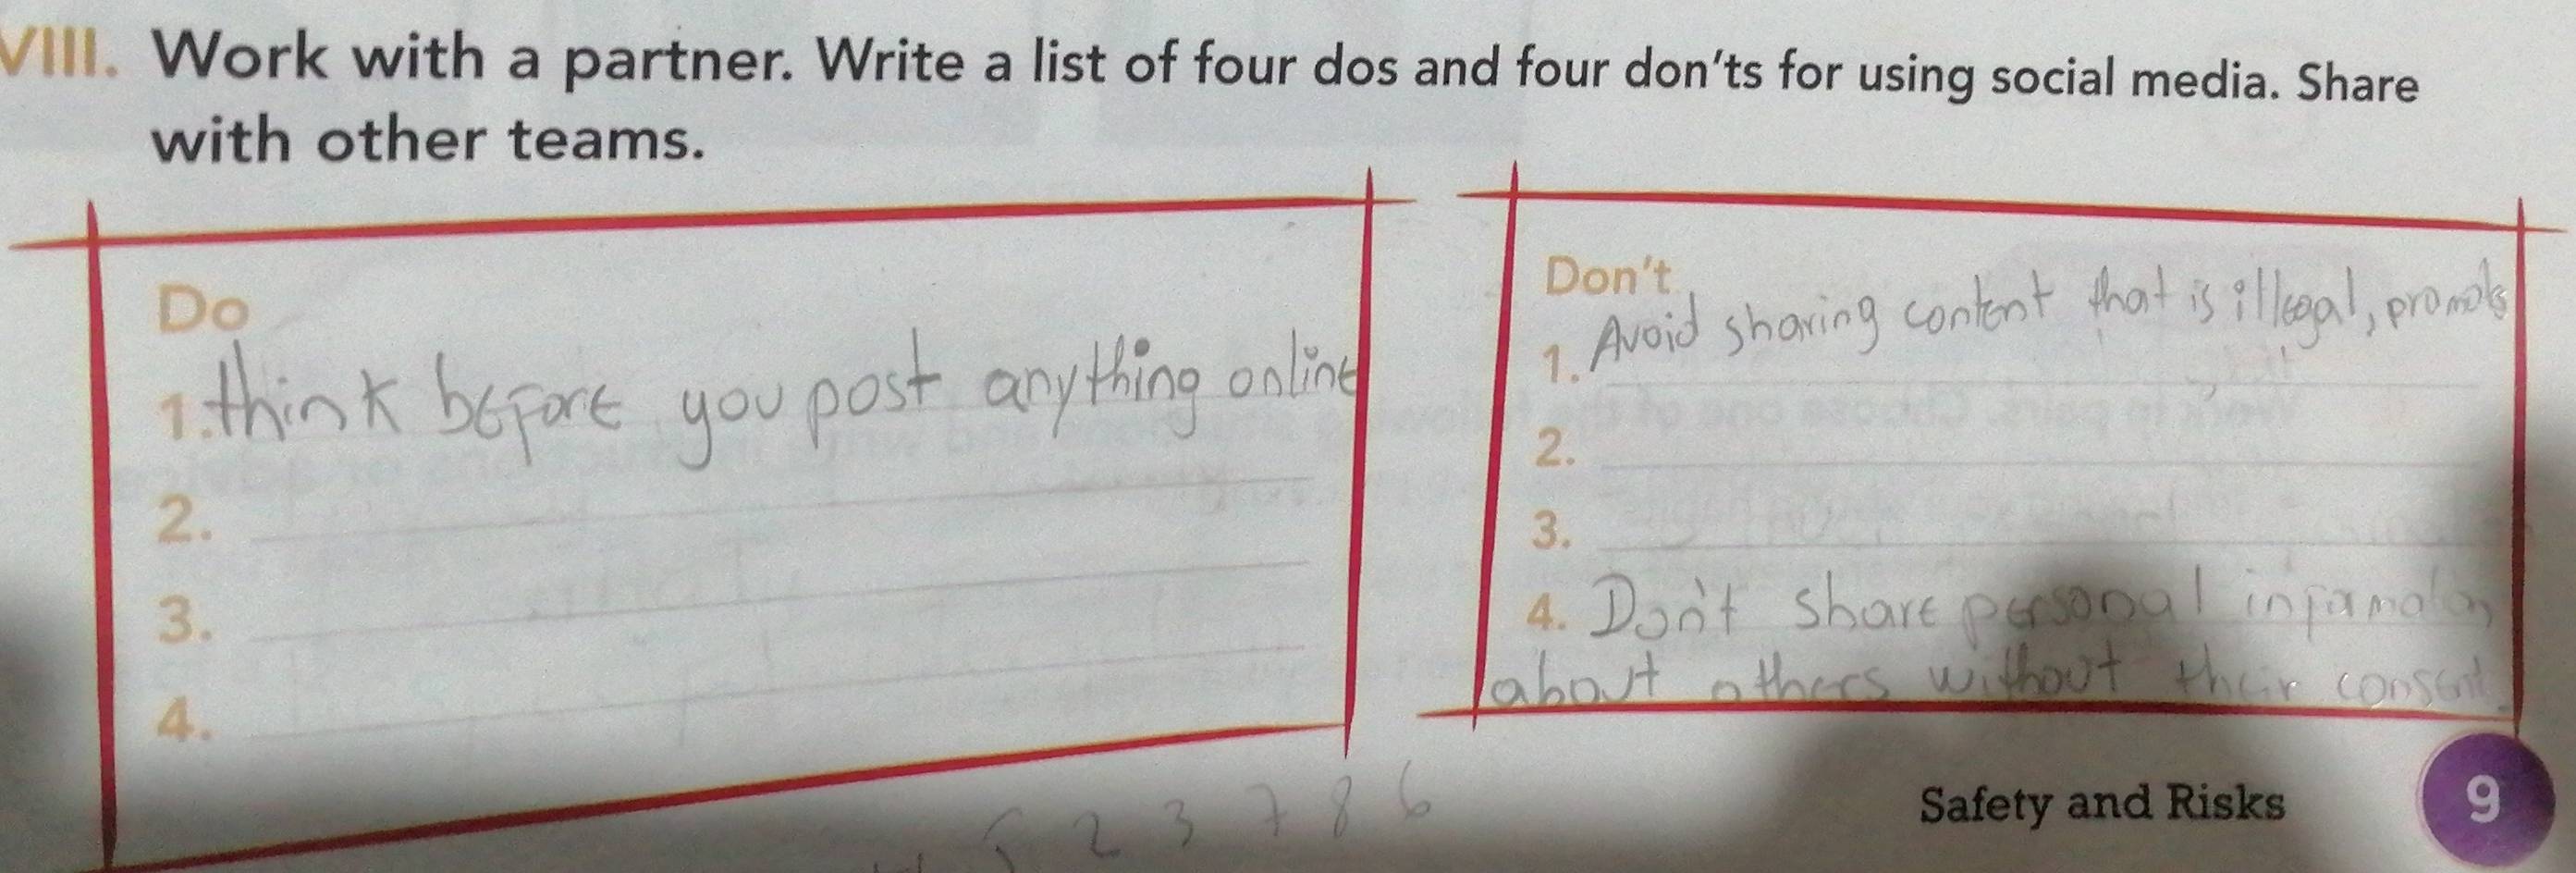 VIII. Work with a partner. Write a list of four dos and four don'ts for using social media. Share
with other teams.
Do
1. think before you post anything online
2.
3.
4.
Don't
1. Avoid sharing content that is illegal, promote
2.
3.
4. Don't share personal information
about others without their consent
5 2 3 7 8 6
Safety and Risks
9